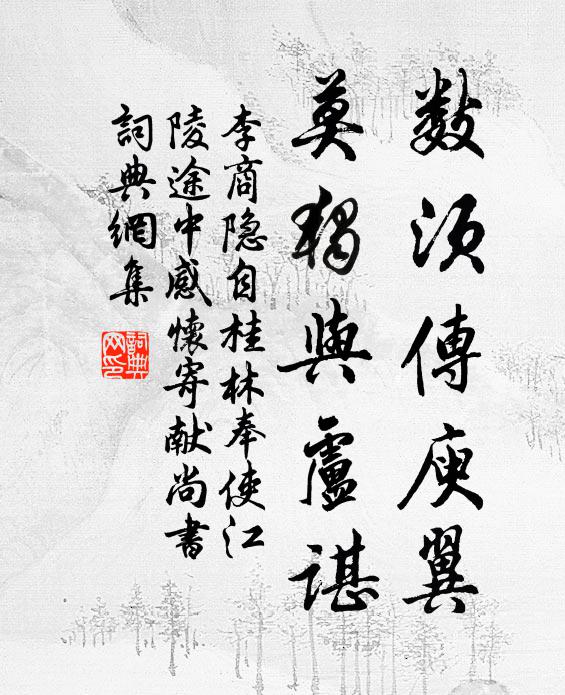 数須傳庾翼
莫獨與盧諶
李商隐自桂林奉使江
陵途中感懷寄献尚書
詞典網集
詞典網印